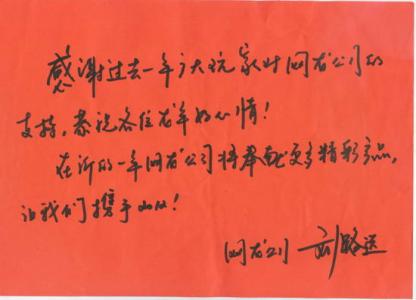 感谢过去一年广大玩家对网龙公司的
支持，恭祝各位龙年好心情！
在新的一年网龙公司将奉献更多精彩产品，
让我们携手
网龙公司 刘路远